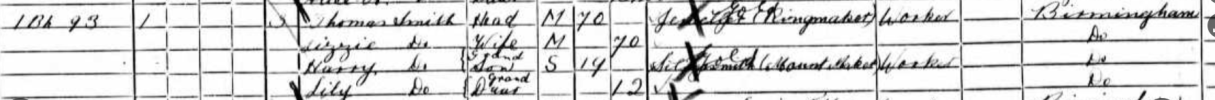 1 Bk 93 1 3 Thomas Smith Head M 70 (Ringmaker) Worker Birmingham
Lizzie Do Wife M 70 Do
Harry Do Grand Son S 14 Smith (Mount Maker) Worker Do
Lily Do Grand Daur 12 Do